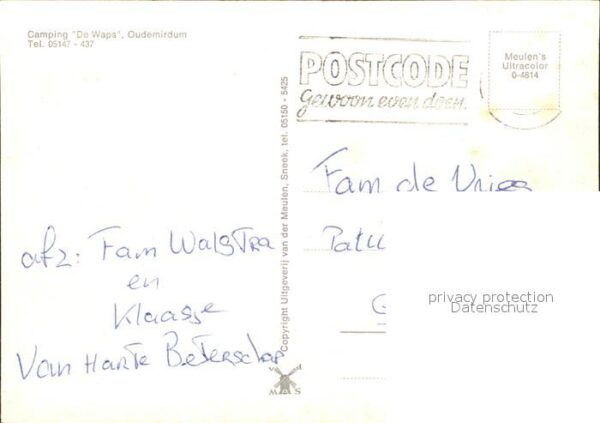 Camping "De Waps", Oudemirdum
Tel. 05147 - 437
POSTCODE
gewoon even doen.
Meulen's
Ultracolor
0-4814
Copyright Uitgeverij van der Meulen, Sneek, tel. 05150 - 5425
Fam de Vries
afz: Fam Walstra
en
Klaasje
Van Harte Beterschap
privacy protection
Datenschutz
MAS